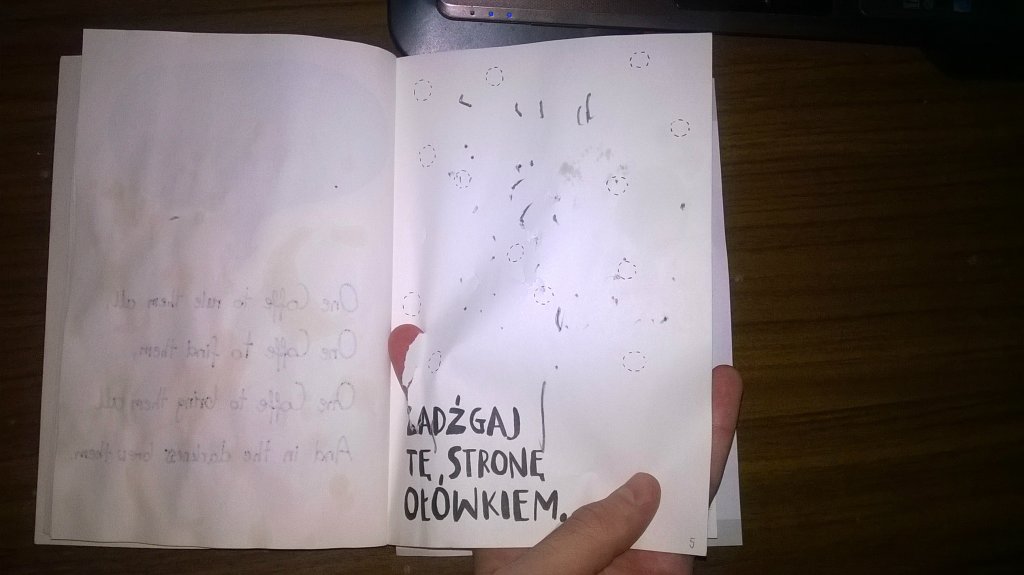 One Coffe to rule them all.
One Coffe to find them,
One Coffe to bring them all
And in the darkness brew them.
ZADŹGAJ
TĘ STRONĘ
OŁÓWKIEM.
5